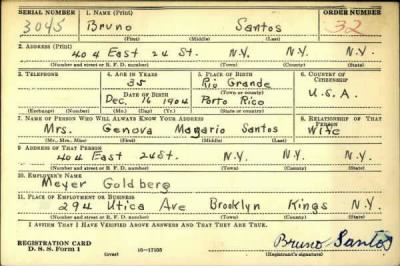 SERIAL NUMBER 1. NAME (Print) ORDER NUMBER
3045 Bruno Santos 32
(First) (Middle) (Last)
2. ADDRESS (Print)
404 East 24 St. N.Y. N.Y.
(Number and street or R. F. D. number) (Town) (County) (State)
3. TELEPHONE 4. AGE IN YEARS 5. PLACE OF BIRTH 6. COUNTRY OF CITIZENSHIP
35 Rio Grande
DATE OF BIRTH (Town or county)
Dec. 16 1904 Porto Rico U.S.A.
(Exchange) (Number) (Mo.) (Day) (Yr.) (State or country)
7. NAME OF PERSON WHO WILL ALWAYS KNOW YOUR ADDRESS 8. RELATIONSHIP OF THAT PERSON
Mrs. Genova Santos Wife
(Mr., Mrs., Miss) (First) (Middle) (Last)
9. ADDRESS OF THAT PERSON
404 East 24 St. N.Y. N.Y.
(Number and street or R. F. D. number) (Town) (County) (State)
10. EMPLOYER'S NAME
Meyer Goldberg
11. PLACE OF EMPLOYMENT OR BUSINESS
294 Utica Ave Brooklyn Kings N.Y.
(Number and street or R. F. D. number) (Town) (County) (State)
I AFFIRM THAT I HAVE VERIFIED ABOVE ANSWERS AND THAT THEY ARE TRUE.
REGISTRATION CARD
D. S. S. Form 1 16—17105 Bruno Santos
(over) (Registrant's signature)